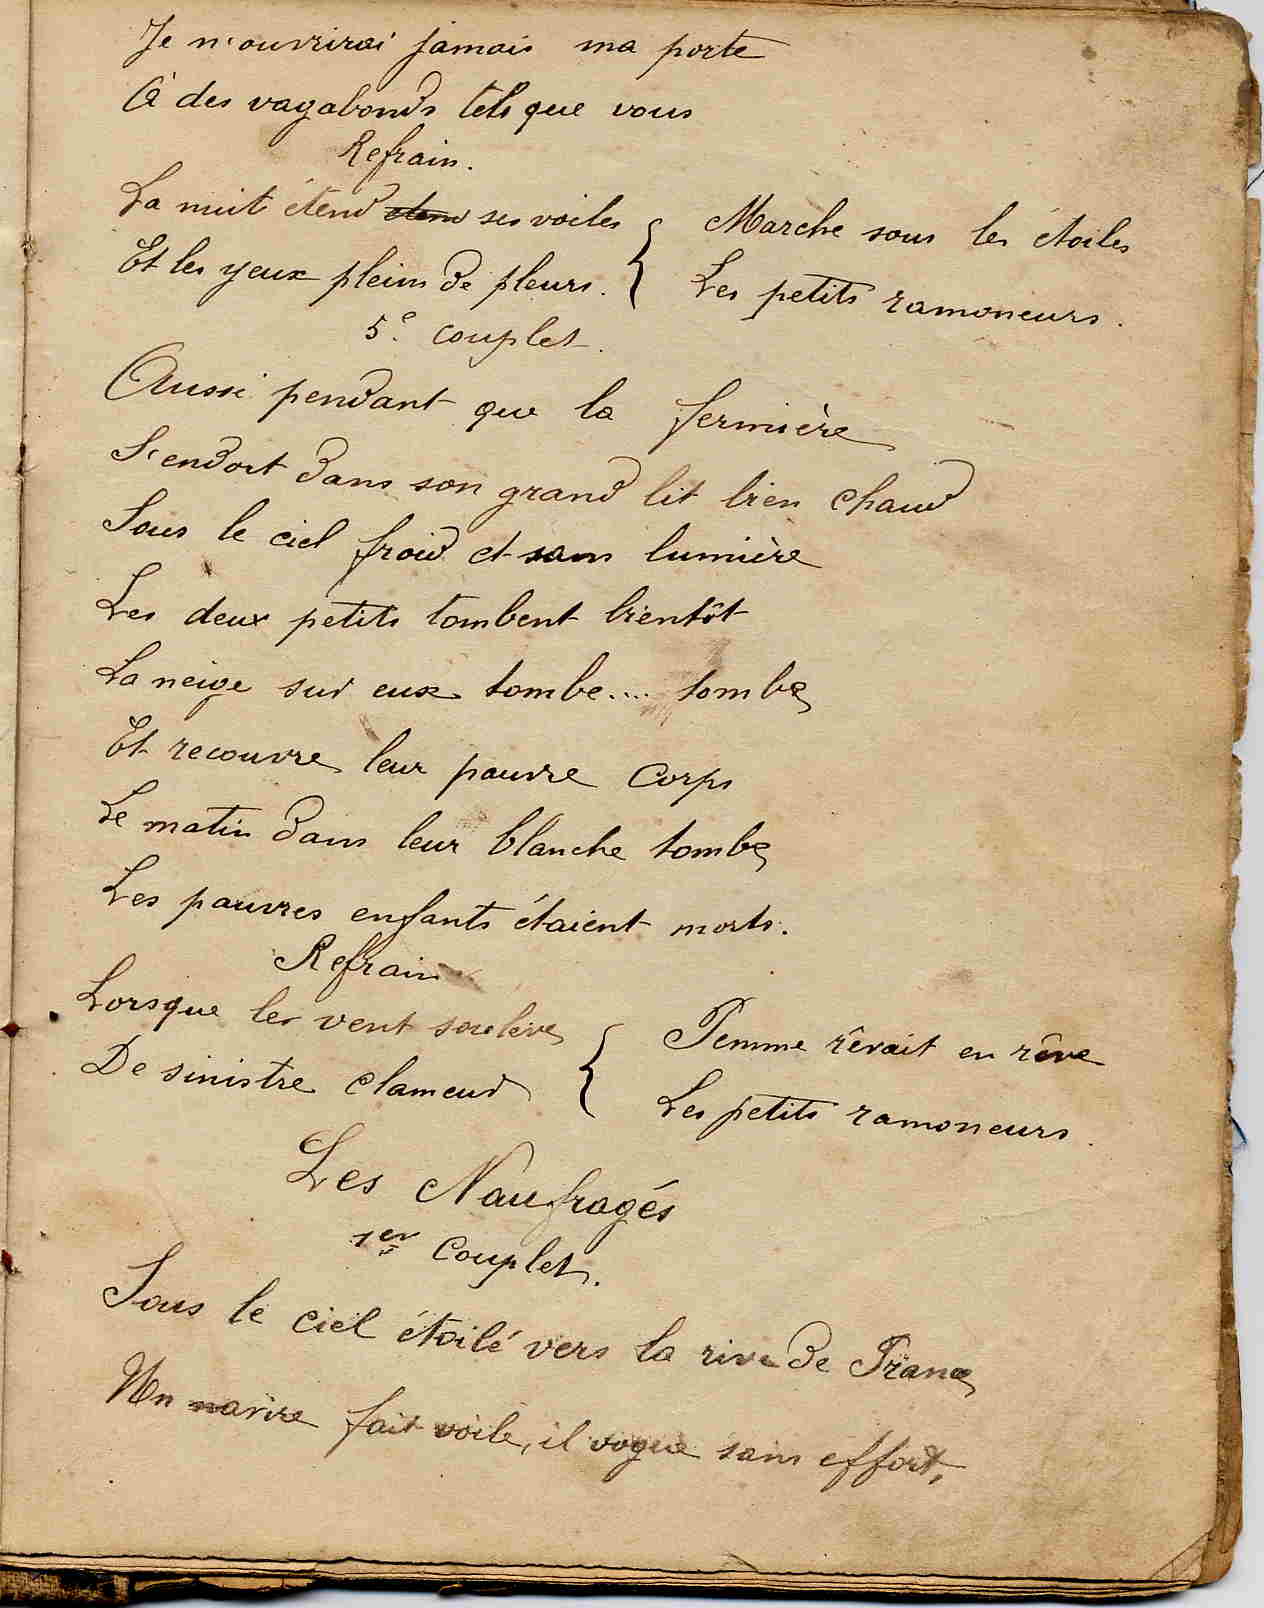 Je n'ouvrirai jamais ma porte
À des vagabonds tels que vous
Refrain.
La nuit étend etend ses voiles { Marche sous les étoiles
Et les yeux pleins de pleurs. { Les petits ramoneurs.
5e couplet.
Aussi pendant que la fermière
S'endort dans son grand lit bien chaud
Sous le ciel froid et sans lumière
Les deux petits tombent bientôt
La neige sur eux tombe.... tombe
Et recouvre leur pauvre corps
Le matin dans leur blanche tombe
Les pauvres enfants étaient morts.
Refrain
Lorsque les vent soulève { Femme rêvait en rêve
De sinistre clameur { Les petits ramoneurs.
Les Naufragés
1er Couplet.
Sous le ciel étoilé vers la rive de France
Un navire fait voile, il vogue sans effort,